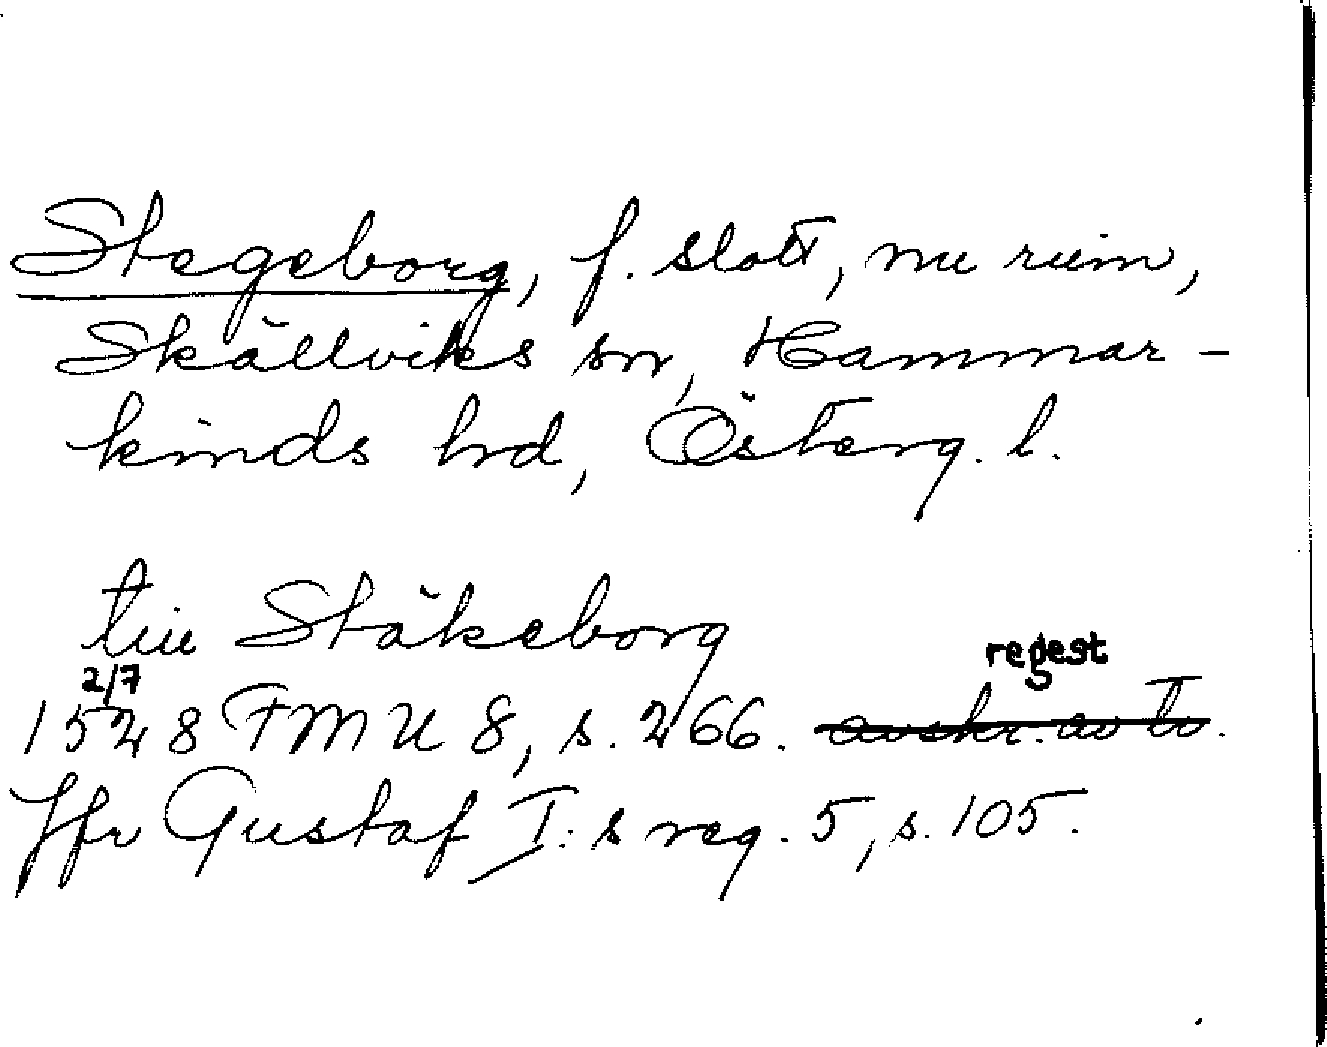 Stegeborg, f. slott, nu ruin,
Skällviks sn, Hammar-
kinds hd, Österg. l.
till Stäkeborg
2/7 regest
1528 FMU 8, s. 266. avskr. av to.
Jfr Gustaf I:s reg. 5, s. 105.